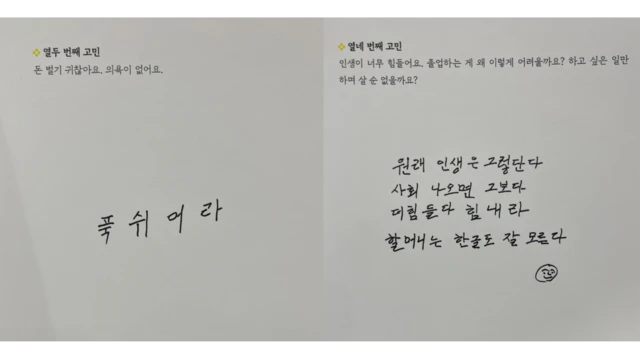 열두 번째 고민
돈 벌기 귀찮아요. 의욕이 없어요.
푹 쉬어라
열네 번째 고민
인생이 너무 힘들어요. 졸업하는 게 왜 이렇게 어려울까요? 하고 싶은 일만
하며 살 순 없을까요?
원래 인생은 그렇단다
사회 나오면 그보다
더힘 들다 힘 내라
할머니는 한글도 잘 모른다